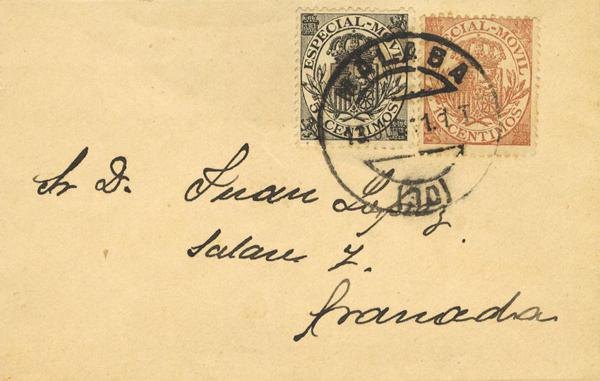 ESPECIAL-MOVIL
5 CENTIMOS
ESPECIAL-MOVIL
5 CENTIMOS
MALAGA
Sr D. Juan Lopez
Salares 7.
Granada